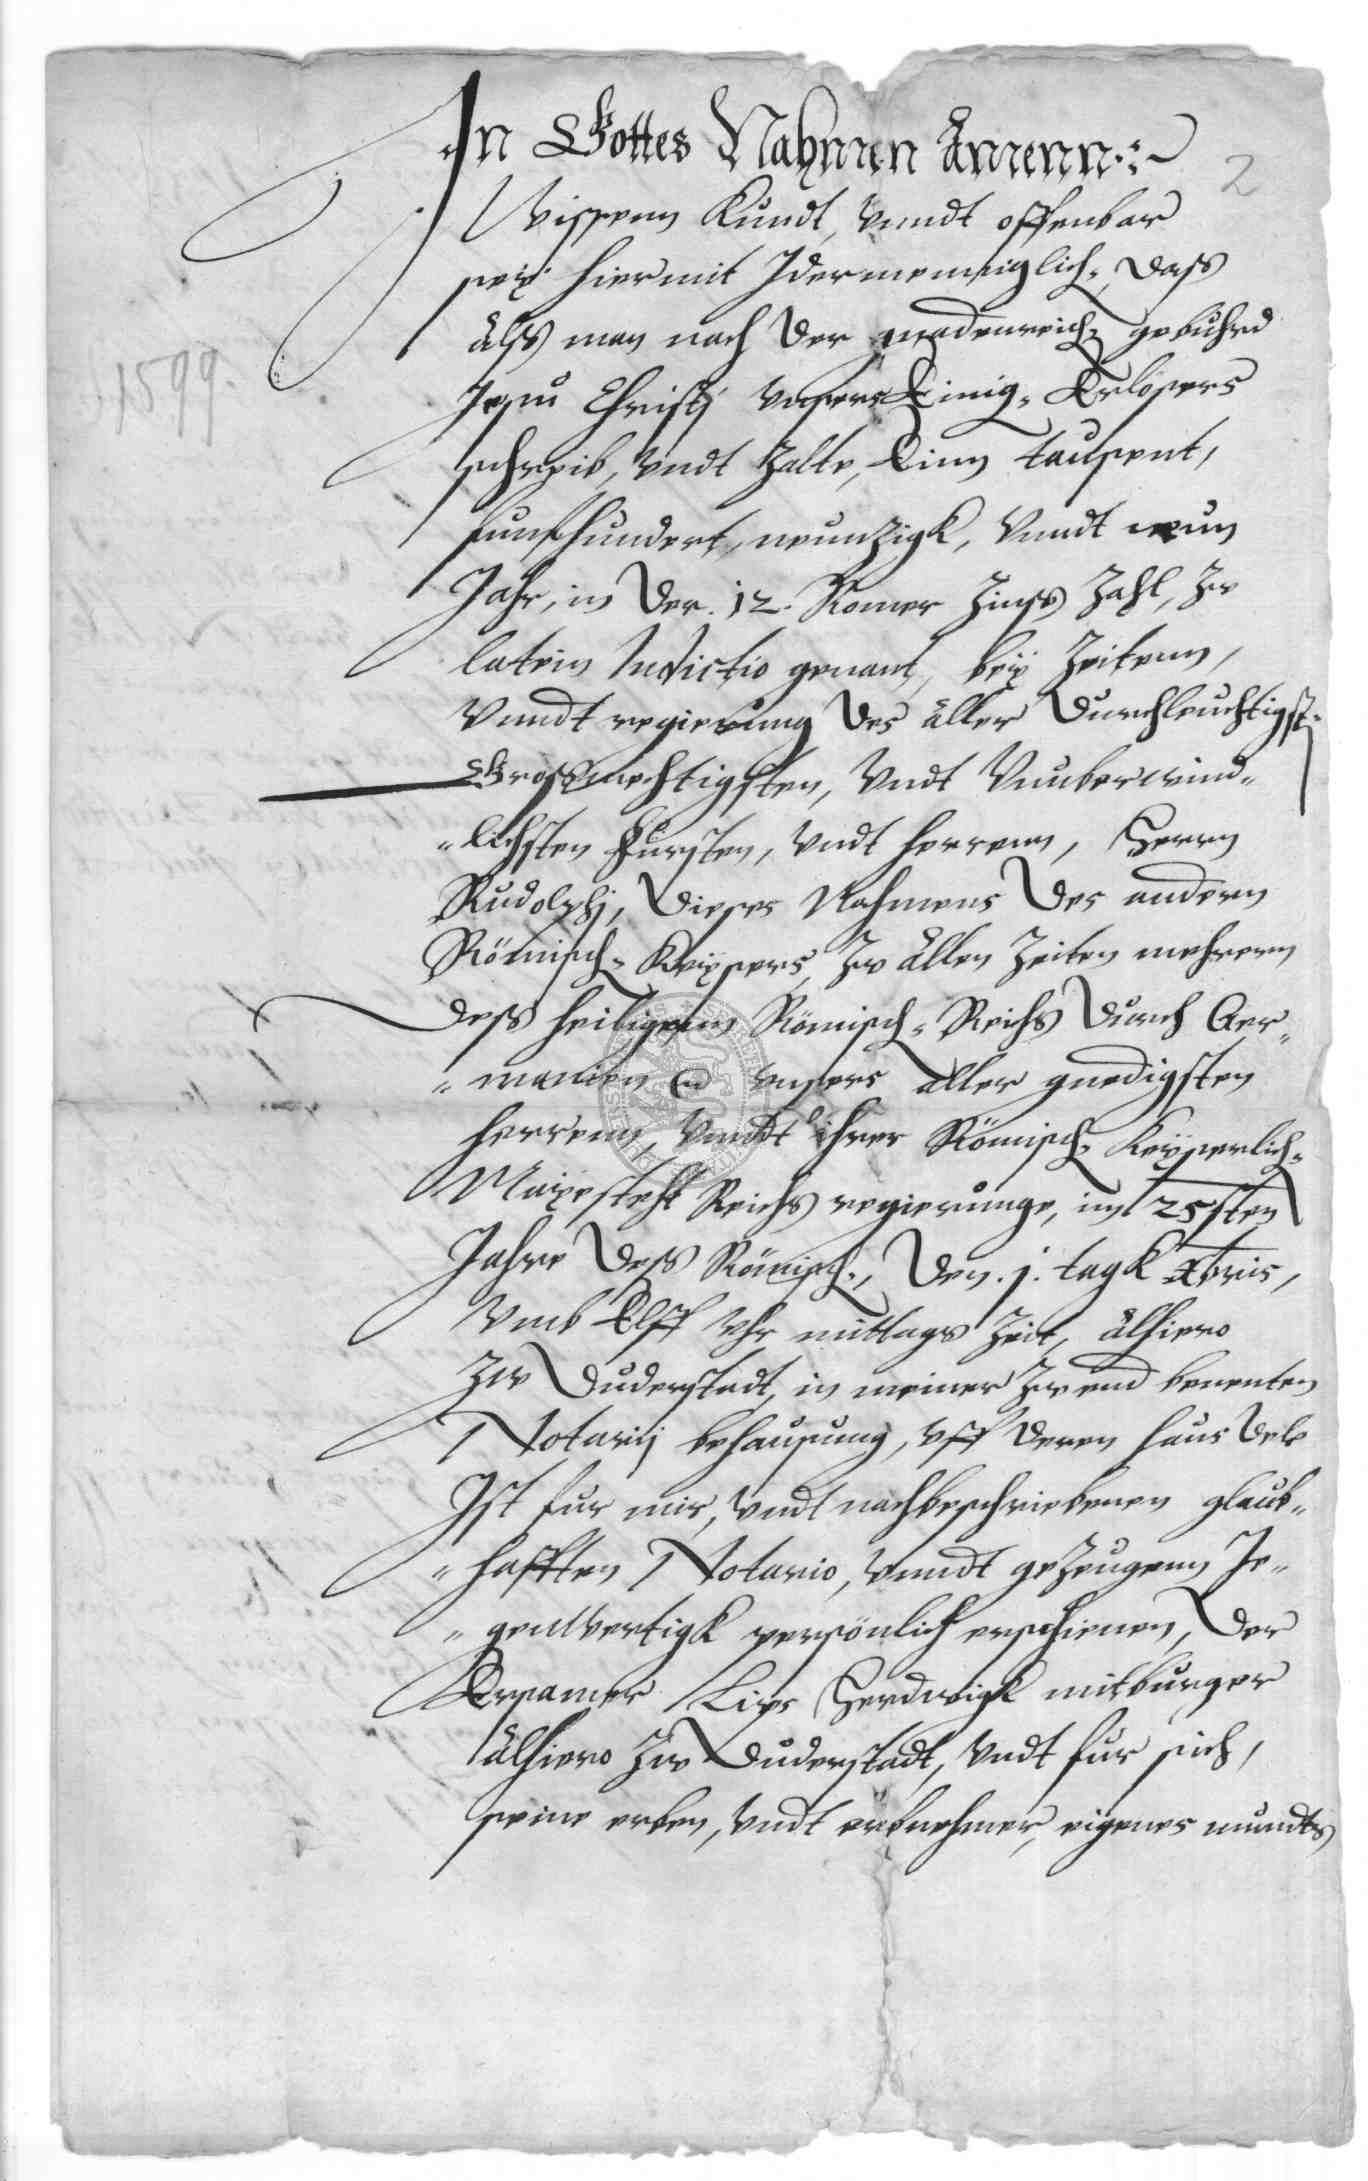 In Gottes Nahmen Amenn
2
Wissenn Kundt, vnndt offenbar
sey hiermit Idermenniglich, Dass
alss man nach Der gnadenreich gebuhrd
1599
Jesu Christj vnsers Einig Erlösers
schreib, vndt Zalte, Einn tausent,
funfhundert, neunzigk, vnndt neun
Jahr, in Der 12. Romer Zinss Zahl, Zu
latein Indictio genant, bey Zeitenn,
vnndt regierung Des aller Durchleuchtigst
Grossmechtigsten, vndt Vnuberwind„
„lichsten Fursten, vndt herrenn, Herrn
Rudolphj, Dieses Nahmens Des andern
Römisch Keysers, Zu allen Zeiten mehrern
Dess heiligenn Römisch Reichs Durch Ger„
„manien vnsers aller gnedigsten
herrenn, vnndt ihrer Römisch Keyserlich
Mayesteht Reichs regierunge, im 25sten
Jahre Dess Römisch, Den j. tagk Xbris,
vmb Elff vhr mittags Zeit, alhiero
Zu Duderstadt, in meiner Zu end benenten
Notarij behausung, vff Deren haus Dele
Ist fur mir, vndt nachbeschriebenen glaub„
„hafften Notario, vnndt geZeugenn Je„
„genwertigk persönlich erschienen, Der
Ersamer Lips Herdwigk mitburger
alhiero Zu Duderstadt, vndt fur sich,
seine erben, vndt erbnehmer, eigenes mundts